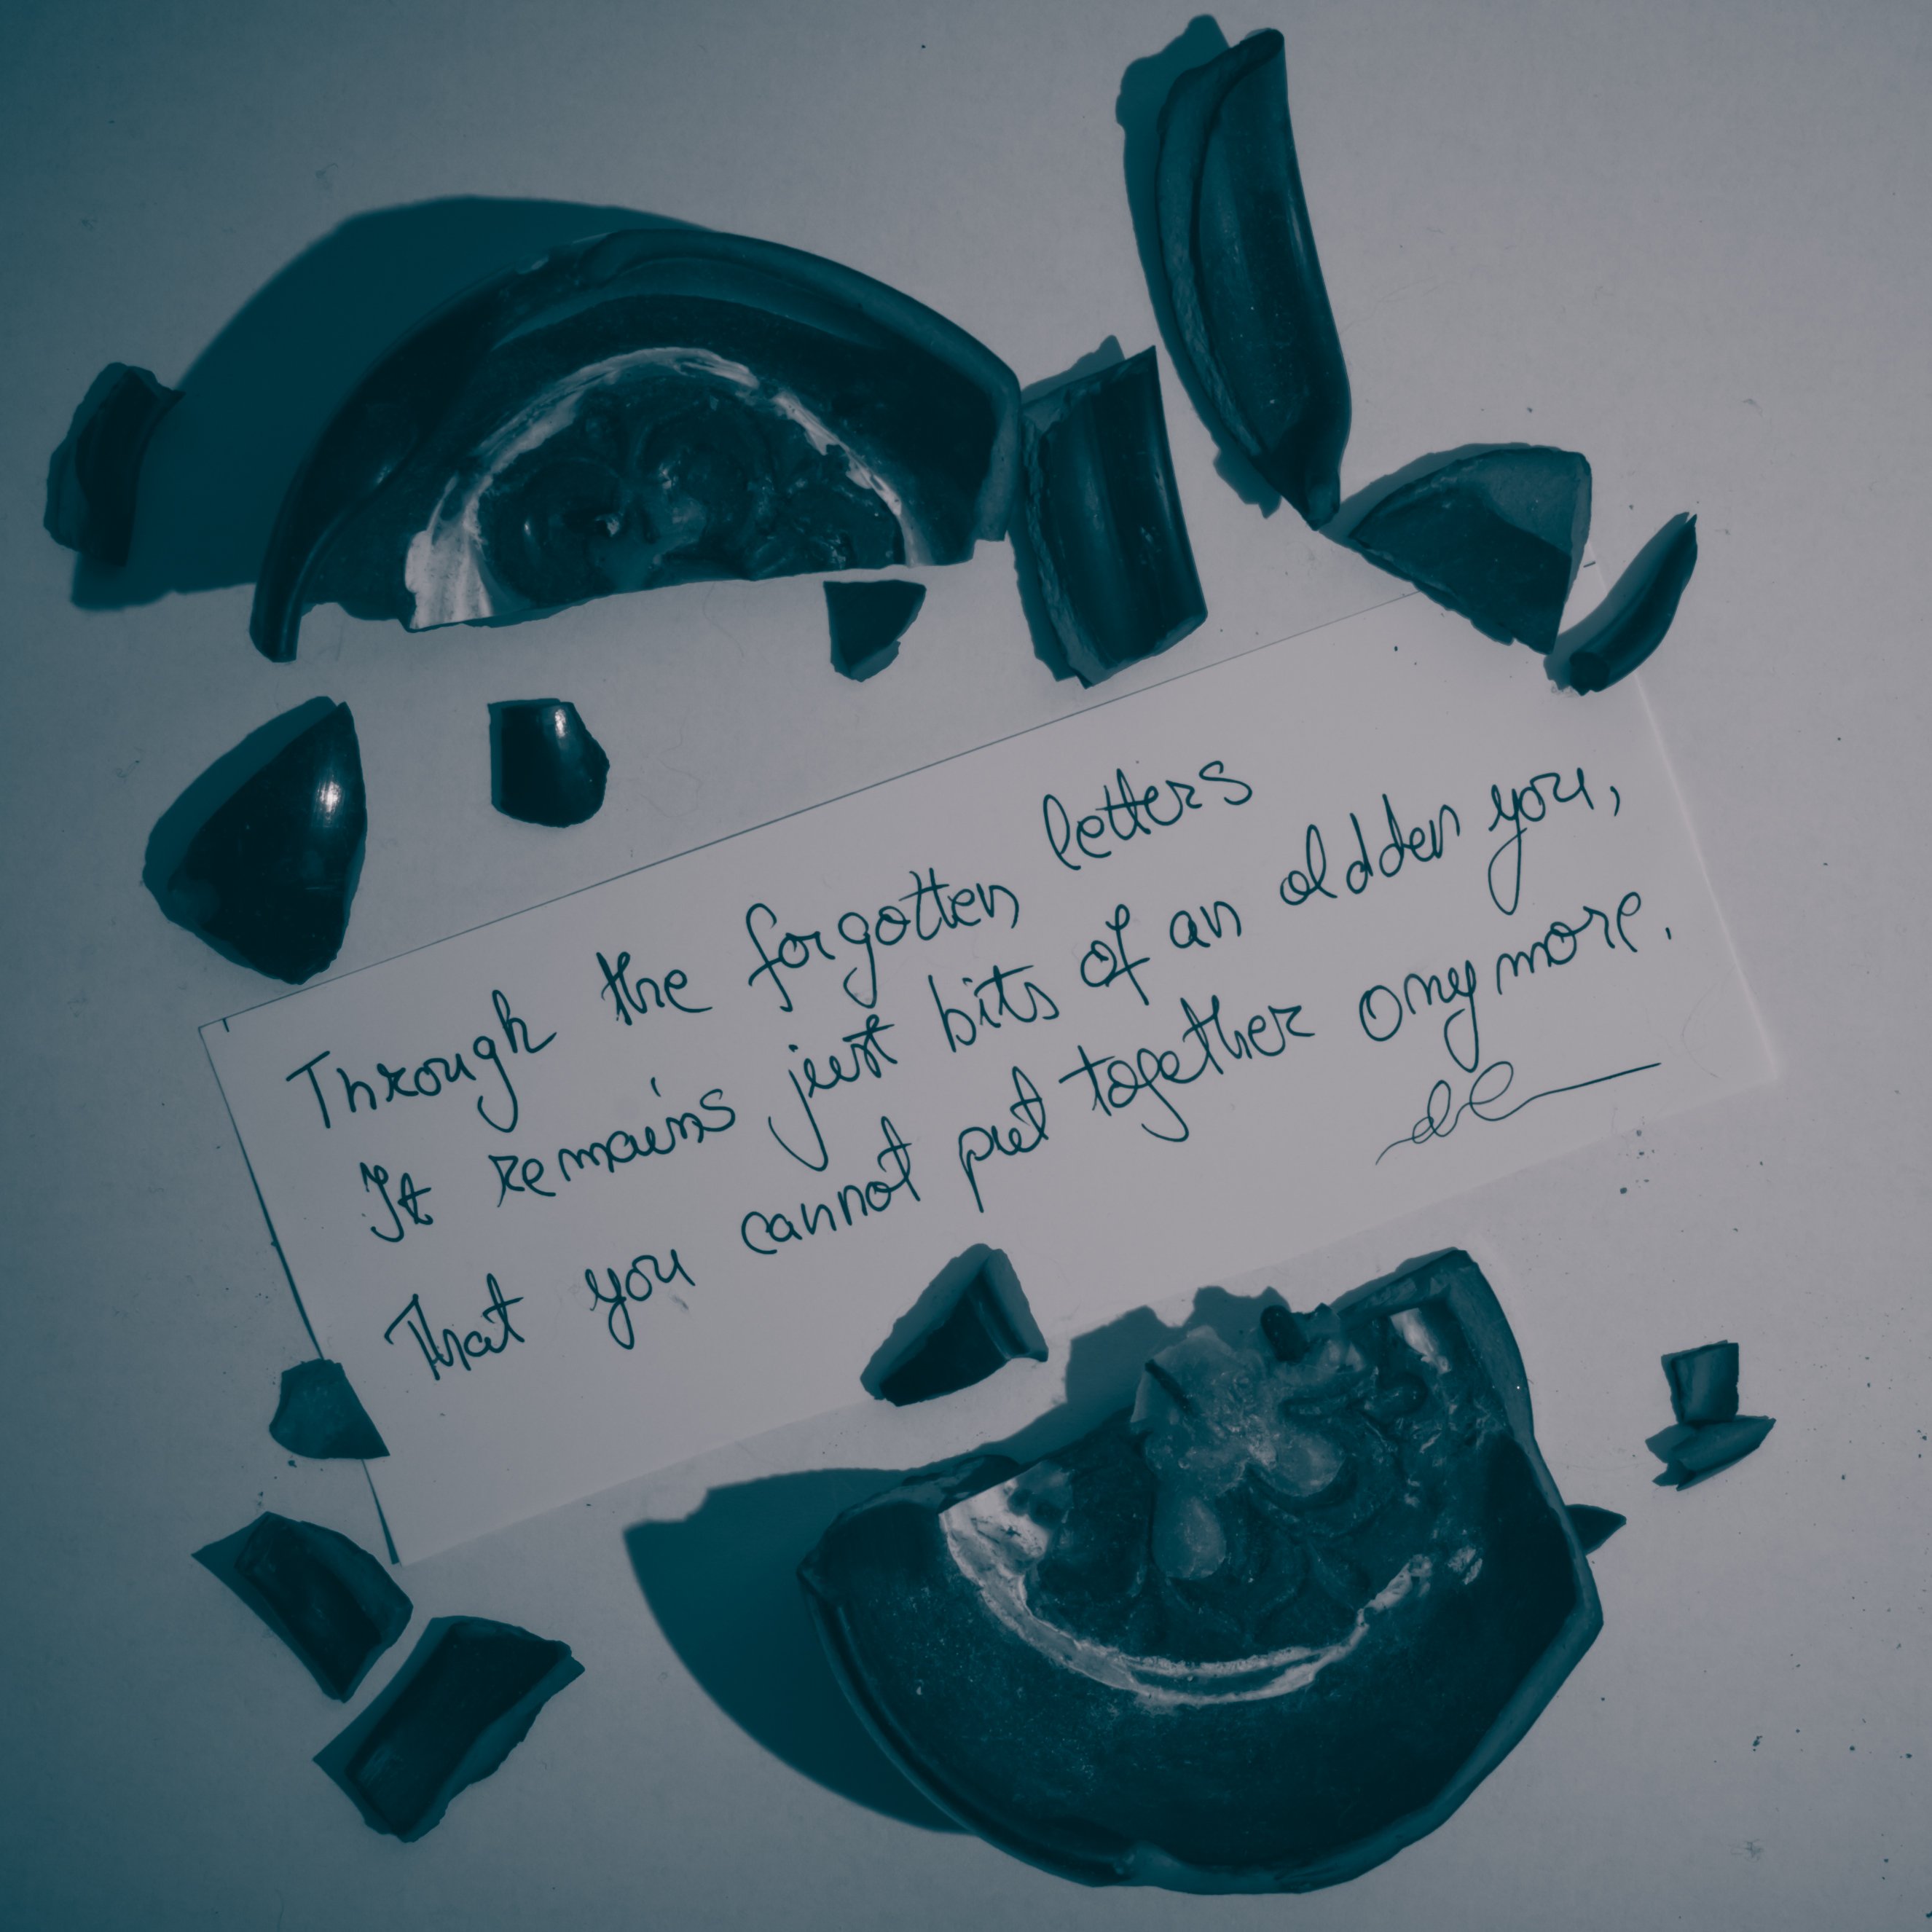 Through the forgotten letters
It remains just bits of an oldden you,
That you cannot put together anymore.